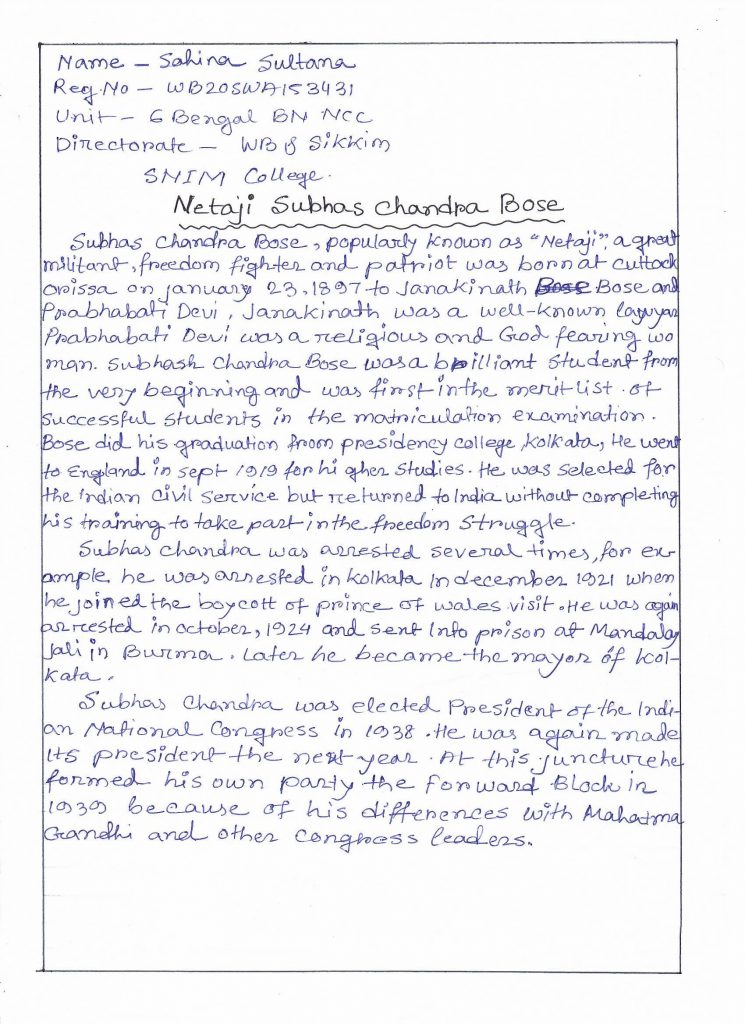 Name - Sahina Sultana
Reg.No - WB20SWA153431
Unit - 6 Bengal BN NCC
Directorate - WB & Sikkim
SNIM College.
Netaji Subhas Chandra Bose
Subhas Chandra Bose, popularly known as "Netaji", a great
militant, freedom fighter and patriot was born at Cuttack
Orissa on january 23, 1897 to Janakinath Bose Bose and
Prabhabati Devi, Janakinath was a well-known layyar
Prabhabati Devi was a religious and God fearing wo
man. Subhash Chandra Bose was a brilliant Student from
the very beginning and was first in the merit list. of
successful students in the matriculation examination.
Bose did his graduation from presidency college, Kolkata, He went
to England in sept 1919 for higher studies. He was selected for
the Indian Civil Service but returned to India without completing
his training to take part in the freedom struggle.
Subhas Chandra was arrested several times, for ex-
ample he was arrested in Kolkata In december 1921 when
he joined the boycott of prince of wales visit. He was again
arrested in october, 1924 and sent Into prison at Mandalay
Jali in Burma. Later he became the mayor of Kol-
kata.
Subhas Chandra was elected President of the Indi-
an National Congress in 1938. He was again made
Its president the next year. At this juncture he
formed his own party the Forward Block in
1939 because of his differences with Mahatma
Gandhi and other congress leaders.